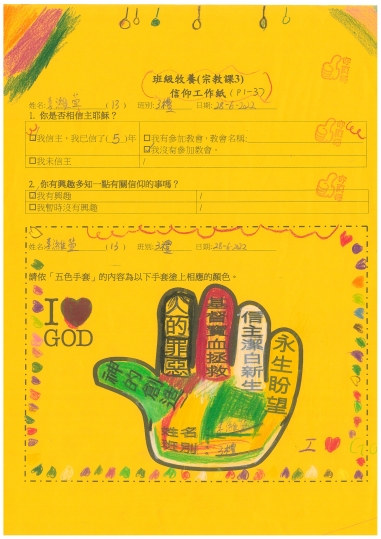 班級牧養(宗教課3)
信仰工作紙(P1-3)
姓名: (13) 班別: 3禮 日期: 28-6-2022
1. 你是否相信主耶穌？
☐我信主，我已信了(5)年 ☐我有參加教會，教會名稱:
☑我沒有參加教會。
☐我未信主 /
2. 你有興趣多知一點有關信仰的事嗎？
☑我有興趣 /
☐我暫時沒有興趣 /
姓名: (13) 班別: 3禮 日期: 28-6-2022
請依「五色手套」的內容為以下手套塗上相應的顏色。
I ♥
GOD
神的創造
人的罪惡
基督寶血拯救
信主潔白新生
永生盼望
姓名
班別 3禮
I ♥